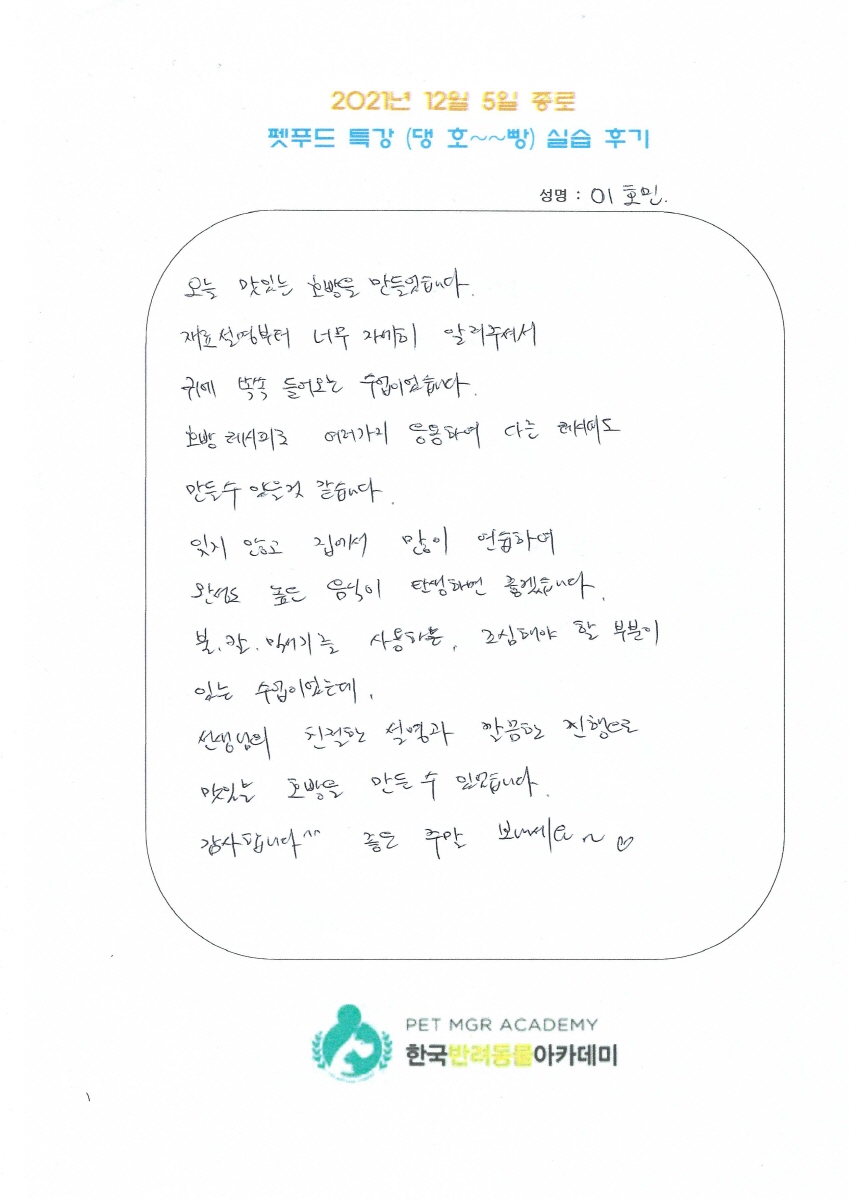 2021년 12월 5일 종로
펫푸드 특강 (댕 호~~빵) 실습 후기
성명 : 이호민.
오늘 맛있는 호빵을 만들었습니다.
재료설명부터 너무 자세히 알려주셔서
귀에 쏙쏙 들어오는 수업이었습니다.
호빵 레시피로 여러가지 응용하여 다른 레시피도
만들수 있을것 같습니다.
잊지 않고 집에서 많이 연습하여
완성도 높은 음식이 탄생하면 좋겠습니다.
불.칼.믹서기 등 사용하는, 조심해야 할 부분이
있는 수업이었는데,
선생님의 친절한 설명과 깔끔한 진행으로
맛있는 호빵을 만들 수 있었습니다.
감사합니다^^ 좋은 주말 보내세요~♡
PET MGR ACADEMY
한국반려동물아카데미